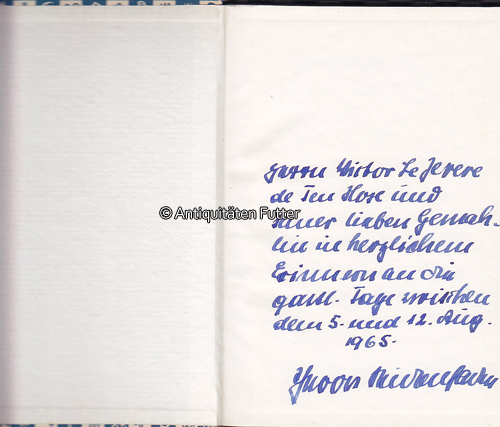 Herrn Victor Le Jeune
de Ten Hose und
seiner lieben Gemah-
lin in herzlichem
Erinnern an die
gastl. Tage zwischen
dem 5. und 12. Aug.
1965.
© Antiquitäten Futter